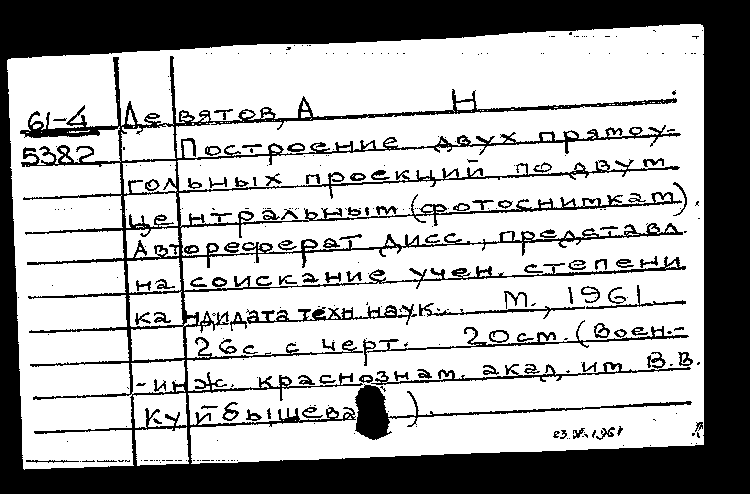 61-4 Девятов, А Н
5382 Построение двух прямоу-
гольных проекций по двум
центральным (фотоснимкам).
Автореферат дисс., представл
на соискание учен. степени
кандидата техн. наук. М., 1961.
26с. с черт. 20см. (Воен.-
-инж. краснознам. акад. им. В.В.
Куйбышева ).
1961